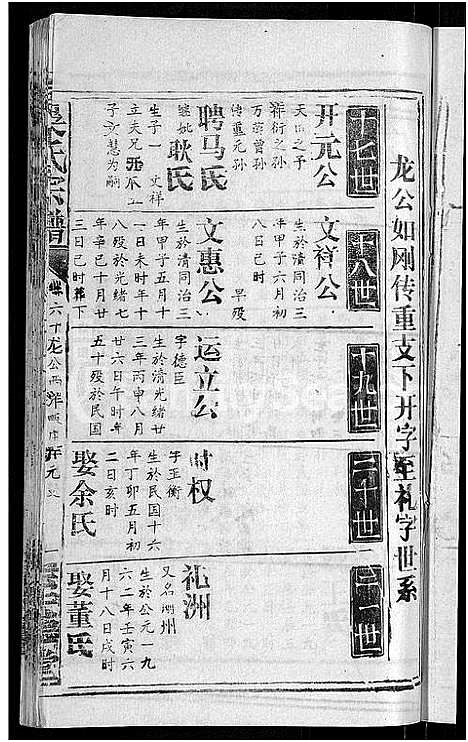 龙公如刚传重支下开字至礼字世系
十七世
开元公
天山之子
祥衍之孙
万荣曾孙
传重元孙
聘马氏
继妣耿氏
生子一 文祥
立夫兄
子文慧为嗣
十八世
文祥公
生於清同治三
年甲子六月初
八日己时 早殁
文惠公
生於清同治三
年甲子五月初
一日未时年十
八殁於光绪七
年辛巳十月廿
三日己时葬下
十九世
运立公
字德臣
生於清光绪廿
三年丙申八月
廿六日午时年
五十殁於民国
二十世
时权
字玉衡
生於民国十六
年丁卯五月初
二日亥时
娶余氏
二一世
礼洲
又名洲州
生於公元一九
六二年壬寅六
月十八日戌时
娶董氏
氏宗谱